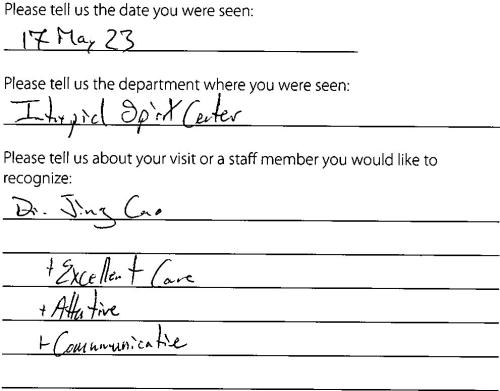 Please tell us the date you were seen:
17 May 23
Please tell us the department where you were seen:
Intrepid Spirit Center
Please tell us about your visit or a staff member you would like to
recognize:
Dr. Jing Cao
+ Excellent Care
+ Attentive
+ Communicative